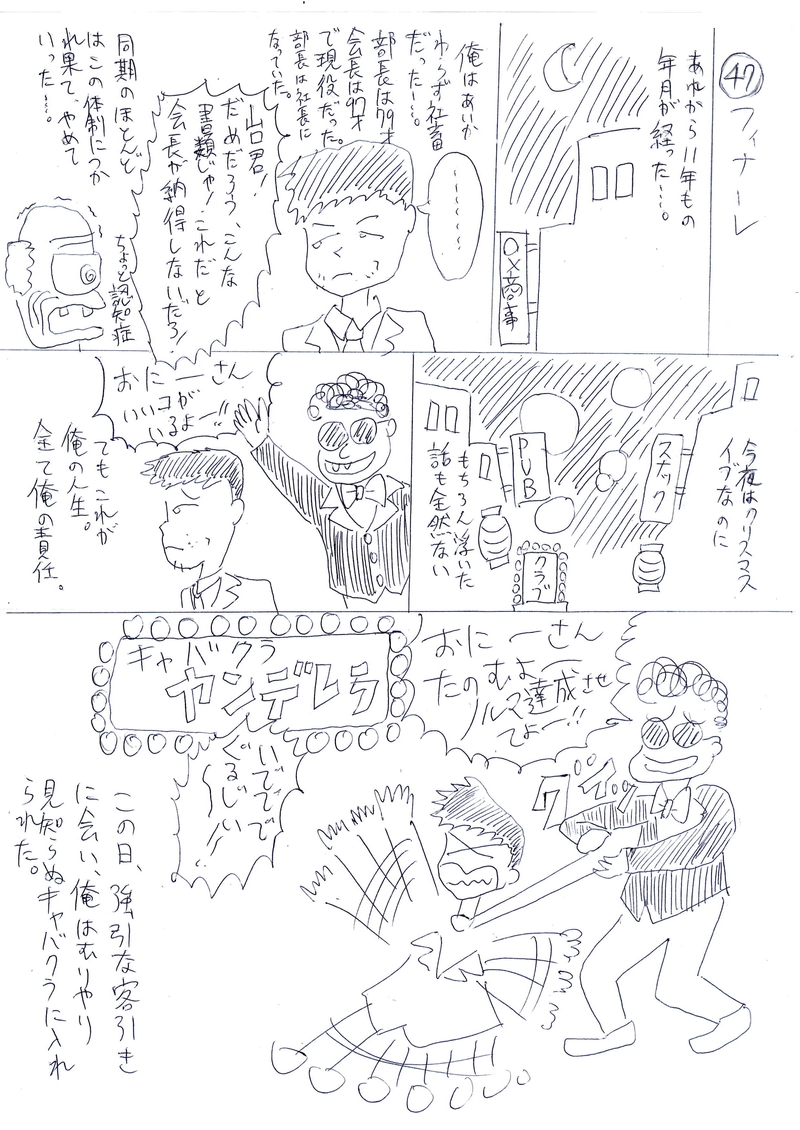 47
フィナーレ
あれから11年もの
年月が経った…。
〇×商事
俺はあいか
わらず社畜
だった…。
部長は79才
会長は97才
で現役だった。
部長は社長に
なっていた。
〜〜〜〜〜〜
山口君！
だめだろう、こんな
書類じゃ！これだと
会長が納得しないだろ！
同期のほとんど
はこの体制につか
れ果て、やめて
いった…。
ちょっと認知症
今夜はクリスマス
イブなのに
スナック
PUB
クラブ
もちろん浮いた
話も全然ない
おにーさん
いいコが
いるよー!!
でもこれが
俺の人生。
全て俺の責任。
おにーさん
たのむよー
ノルマ達成させ
てよー!!
キャバクラ
カンデレラ
グイッ
いてててで
ぐるじい
〜〜〜！
この日、強引な客引き
に会い、俺はむりやり
見知らぬキャバクラに入れ
られた。